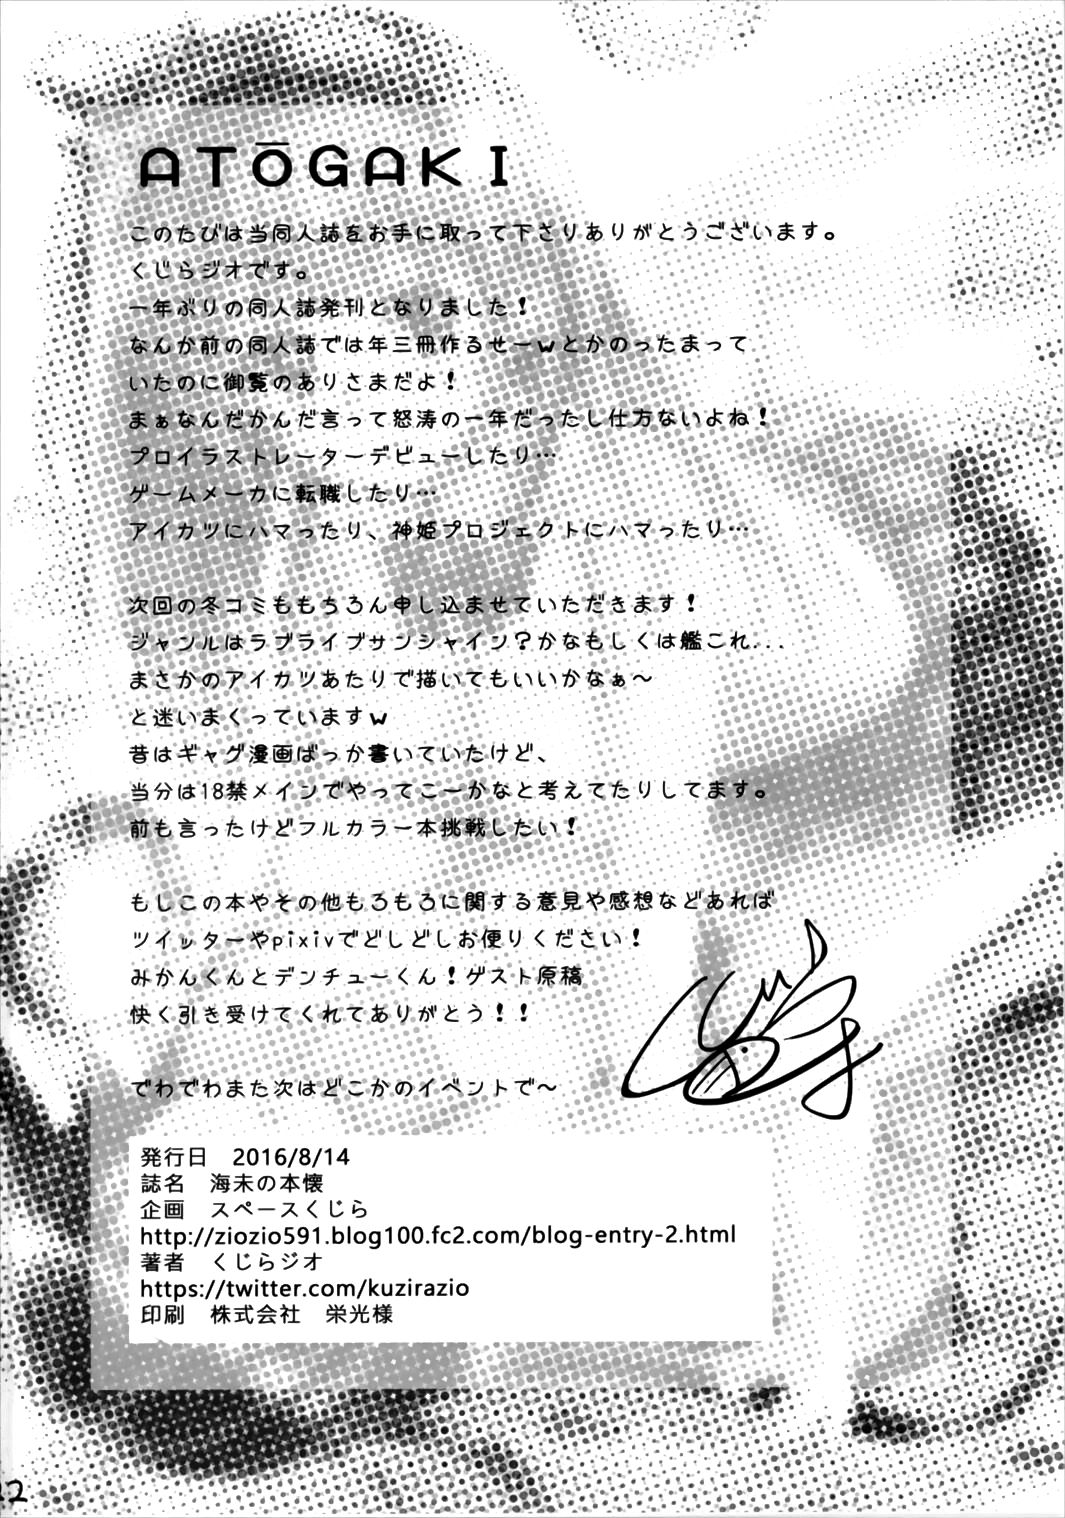 ATŌGAKI
このたびは当同人誌をお手に取って下さりありがとうございます。
くじらジオです。
一年ぶりの同人誌発刊となりました！
なんか前の同人誌では年三冊作るせーｗとかのったまって
いたのに御覧のありさまだよ！
まぁなんだかんだ言って怒涛の一年だったし仕方ないよね！
プロイラストレーターデビューしたり…
ゲームメーカに転職したり…
アイカツにハマったり、神姫プロジェクトにハマったり…
次回の冬コミももちろん申し込ませていただきます！
ジャンルはラブライブサンシャイン？かなもしくは艦これ...
まさかのアイカツあたりで描いてもいいかなぁ〜
と迷いまくっていますｗ
昔はギャグ漫画ばっか書いていたけど、
当分は18禁メインでやってこーかなと考えてたりしてます。
前も言ったけどフルカラー本挑戦したい！
もしこの本やその他もろもろに関する意見や感想などあれば
ツイッターやpixivでどしどしお便りください！
みかんくんとデンチューくん！ゲスト原稿
快く引き受けてくれてありがとう！！
でわでわまた次はどこかのイベントで〜
発行日　2016/8/14
誌名　海未の本懐
企画　スペースくじら
http://ziozio591.blog100.fc2.com/blog-entry-2.html
著者　くじらジオ
https://twitter.com/kuzirazio
印刷　株式会社　栄光様
22